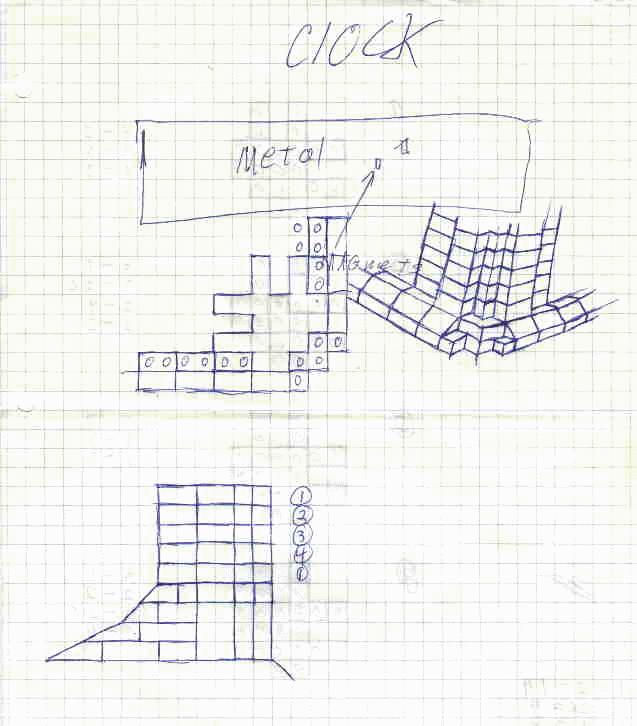 CLOCK
Metal
Magnets
1
2
3
4